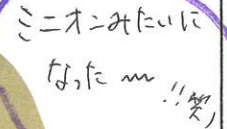 ミニオンみたいに
なった〜!!笑